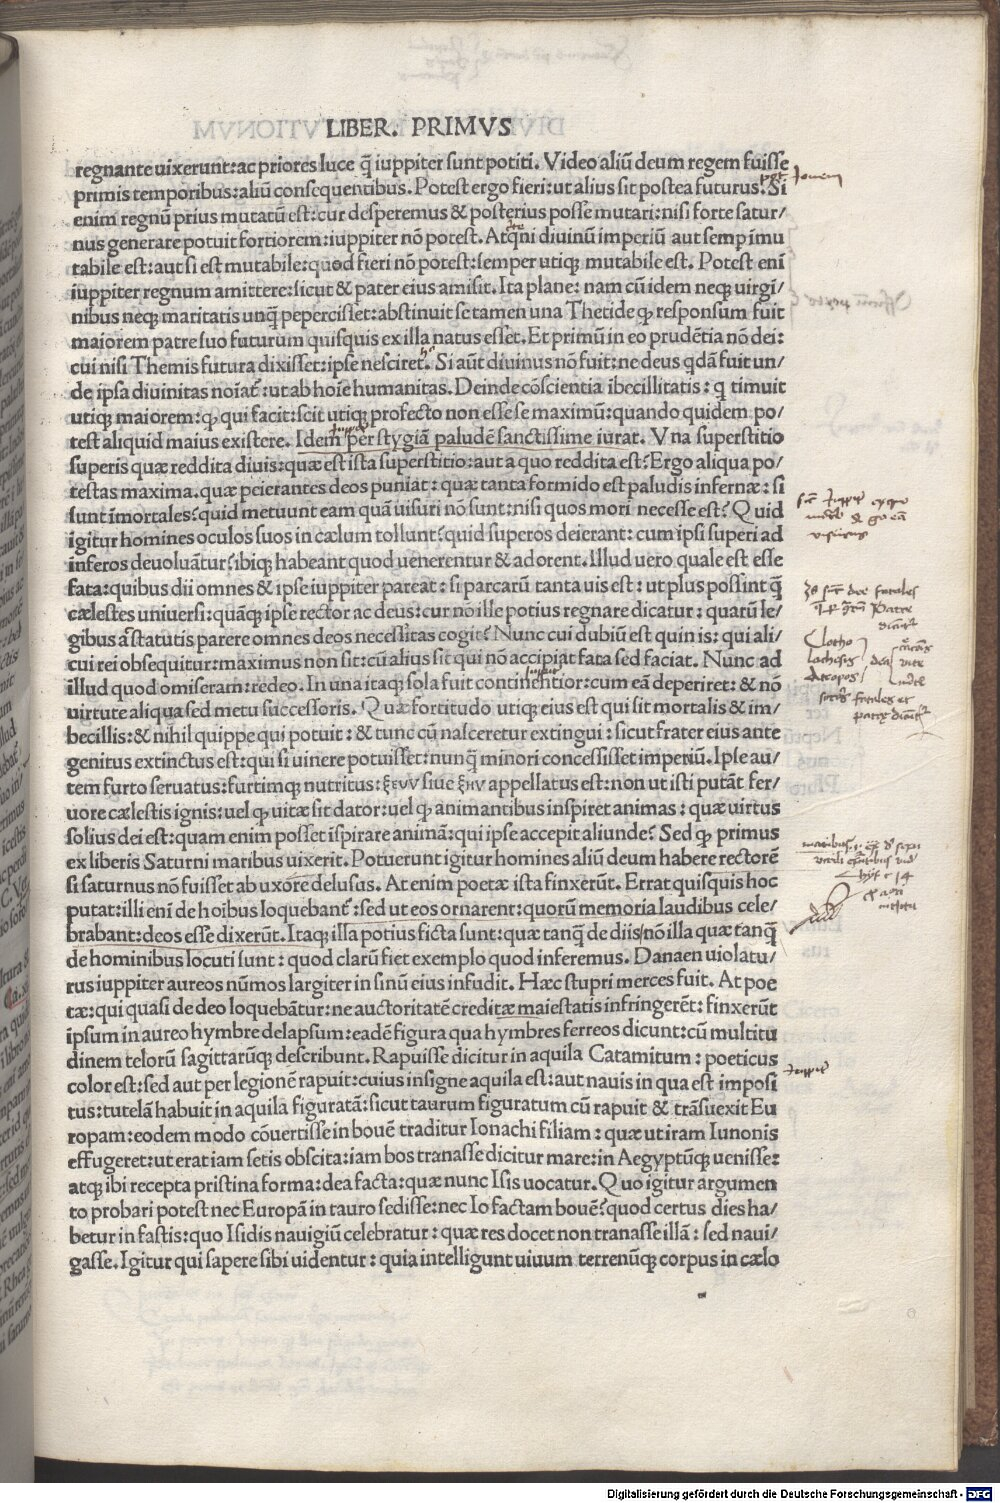 LIBER. PRIMVS
regnante uixerunt: ac priores luce q̃ iuppiter sunt potiti. Video aliũ deum regem fuisse
primis temporibus: aliũ consequentibus. Potest ergo fieri: ut alius sit postea futurus. Si
enim regnũ prius mutatũ est: cur desperemus & posterius posse mutari: nisi forte satur/
nus generare potuit fortiorem: iuppiter nõ potest. Atqni diuinũ imperiũ aut semp imu
tabile est: aut si est mutabile: quod fieri nõ potest: semper utiqꝫ mutabile est. Potest eni
iuppiter regnum amittere: sicut & pater eius amisit. Ita plane: nam cũ idem neqꝫ uirgi/
nibus neqꝫ maritatis unq̃ pepercisset: abstinuit se tamen una Thetide qꝫ responsum fuit
maiorem patre suo futurum quisquis ex illa natus esset. Et primũ in eo prudẽtia nõ dei:
cui nisi Themis futura dixisset: ipse nesciret. Si aũt diuinus nõ fuit: ne deus qdã fuit un/
de ipsa diuinitas noiat̃: ut ab hoie humanitas. Deinde cõscientia ibecillitatis: q timuit
utiqꝫ maiorem: qꝫ qui facit: scit utiqꝫ profecto non esse se maximũ: quando quidem po/
test aliquid maius existere. Idem per stygiã paludẽ sanctissime iurat. Vna superstitio
superis quæ reddita diuis: quæ est ista superstitio: aut a quo reddita est? Ergo aliqua po/
testas maxima. quæ peierantes deos puniat: quæ tanta formido est paludis infernæ: si
sunt ĩmortales? quid metuunt eam quã uisuri nõ sunt: nisi quos mori necesse est? Quid
igitur homines oculos suos in cælum tollunt? quid superos deierant: cum ipsi superi ad
inferos deuoluãtur? ibiqꝫ habeant quod uenerentur & adorent. Illud uero quale est esse
fata: quibus dii omnes & ipse iuppiter pareat: si parcarũ tanta uis est: ut plus possint q̃
cælestes uniuersi: quãqꝫ ipse rector ac deus: cur nõ ille potius regnare dicatur: quarũ le/
gibus ac̃ statutis parere omnes deos necessitas cogit? Nunc cui dubiũ est quin is: qui ali/
cui rei obsequitur: maximus non sit: cũ alius sit qui nõ accipiat fata sed faciat. Nunc ad
illud quod omiseram: redeo. In una itaqꝫ sola fuit continentior: cum eã deperiret: & nõ
uirtute aliqua sed metu successoris. Quæ fortitudo utiqꝫ eius est qui sit mortalis & im/
becillis: & nihil quippe qui potuit: & tunc cũ nasceretur extingui: sicut frater eius ante
genitus extinctus est: qui si uinere potuisset: nunq̃ minori concessisset imperiũ. Ipse au/
tem furto seruatus: furtimqꝫ nutritus: ξευν siue ξην appellatus est: non ut isti putãt fer/
uore cælestis ignis: uel qꝫ uitæ sit dator: uel qꝫ animantibus inspiret animas: quæ uirtus
solius dei est: quam enim posset ispirare animã: qui ipse accepit aliunde? Sed qꝫ primus
ex liberis Saturni maribus uixerit. Potuerunt igitur homines aliũ deum habere rectorẽ
si saturnus nõ fuisset ab uxore delusus. At enim poetæ ista finxerũt. Errat quisquis hoc
putat: illi eni de hoibus loquebant̃: sed ut eos ornarent: quorũ memoria laudibus cele/
brabant: deos esse dixerũt. Itaqꝫ illa potius ficta sunt: quæ tanq̃ de diis/nõ illa quæ tanq̃
de hominibus locuti sunt: quod clarũ fiet exemplo quod inferemus. Danaen uiolatu/
rus iuppiter aureos nũmos largiter in sinũ eius infudit. Hæc stupri merces fuit. At poe
tæ: qui quasi de deo loquebãtur: ne auctoritatẽ creditæ maiestatis infringerẽt: finxerũt
ipsum in aureo hymbre delapsum: eadẽ figura qua hymbres ferreos dicunt: cũ multitu
dinem telorũ sagittarũqꝫ describunt. Rapuisse dicitur in aquila Catamitum: poeticus
color est: sed aut per legionẽ rapuit: cuius insigne aquila est: aut nauis in qua est imposi
tus: tutelã habuit in aquila figuratã: sicut taurum figuratum cũ rapuit & trãsuexit Eu
ropam: eodem modo cõuertisse in bouẽ traditur Ionachi filiam: quæ ut iram Iunonis
effugeret: ut erat iam setis obscita: iam bos tranasse dicitur mare: in Aegyptũqꝫ uenisse:
atqꝫ ibi recepta pristina forma: dea facta: quæ nunc Isis uocatur. Quo igitur argumen
to probari potest nec Europã in tauro sedisse: nec Io factam bouẽ? quod certus dies ha/
betur in fastis: quo Isidis nauigiũ celebratur: quæ res docet non tranasse illã: sed naui/
gasse. Igitur qui sapere sibi uidentur: quia intelligunt uiuum terrenũqꝫ corpus in cælo
Clotho
lachesis
Atropos
Digitalisierung gefördert durch die Deutsche Forschungsgemeinschaft - DFG